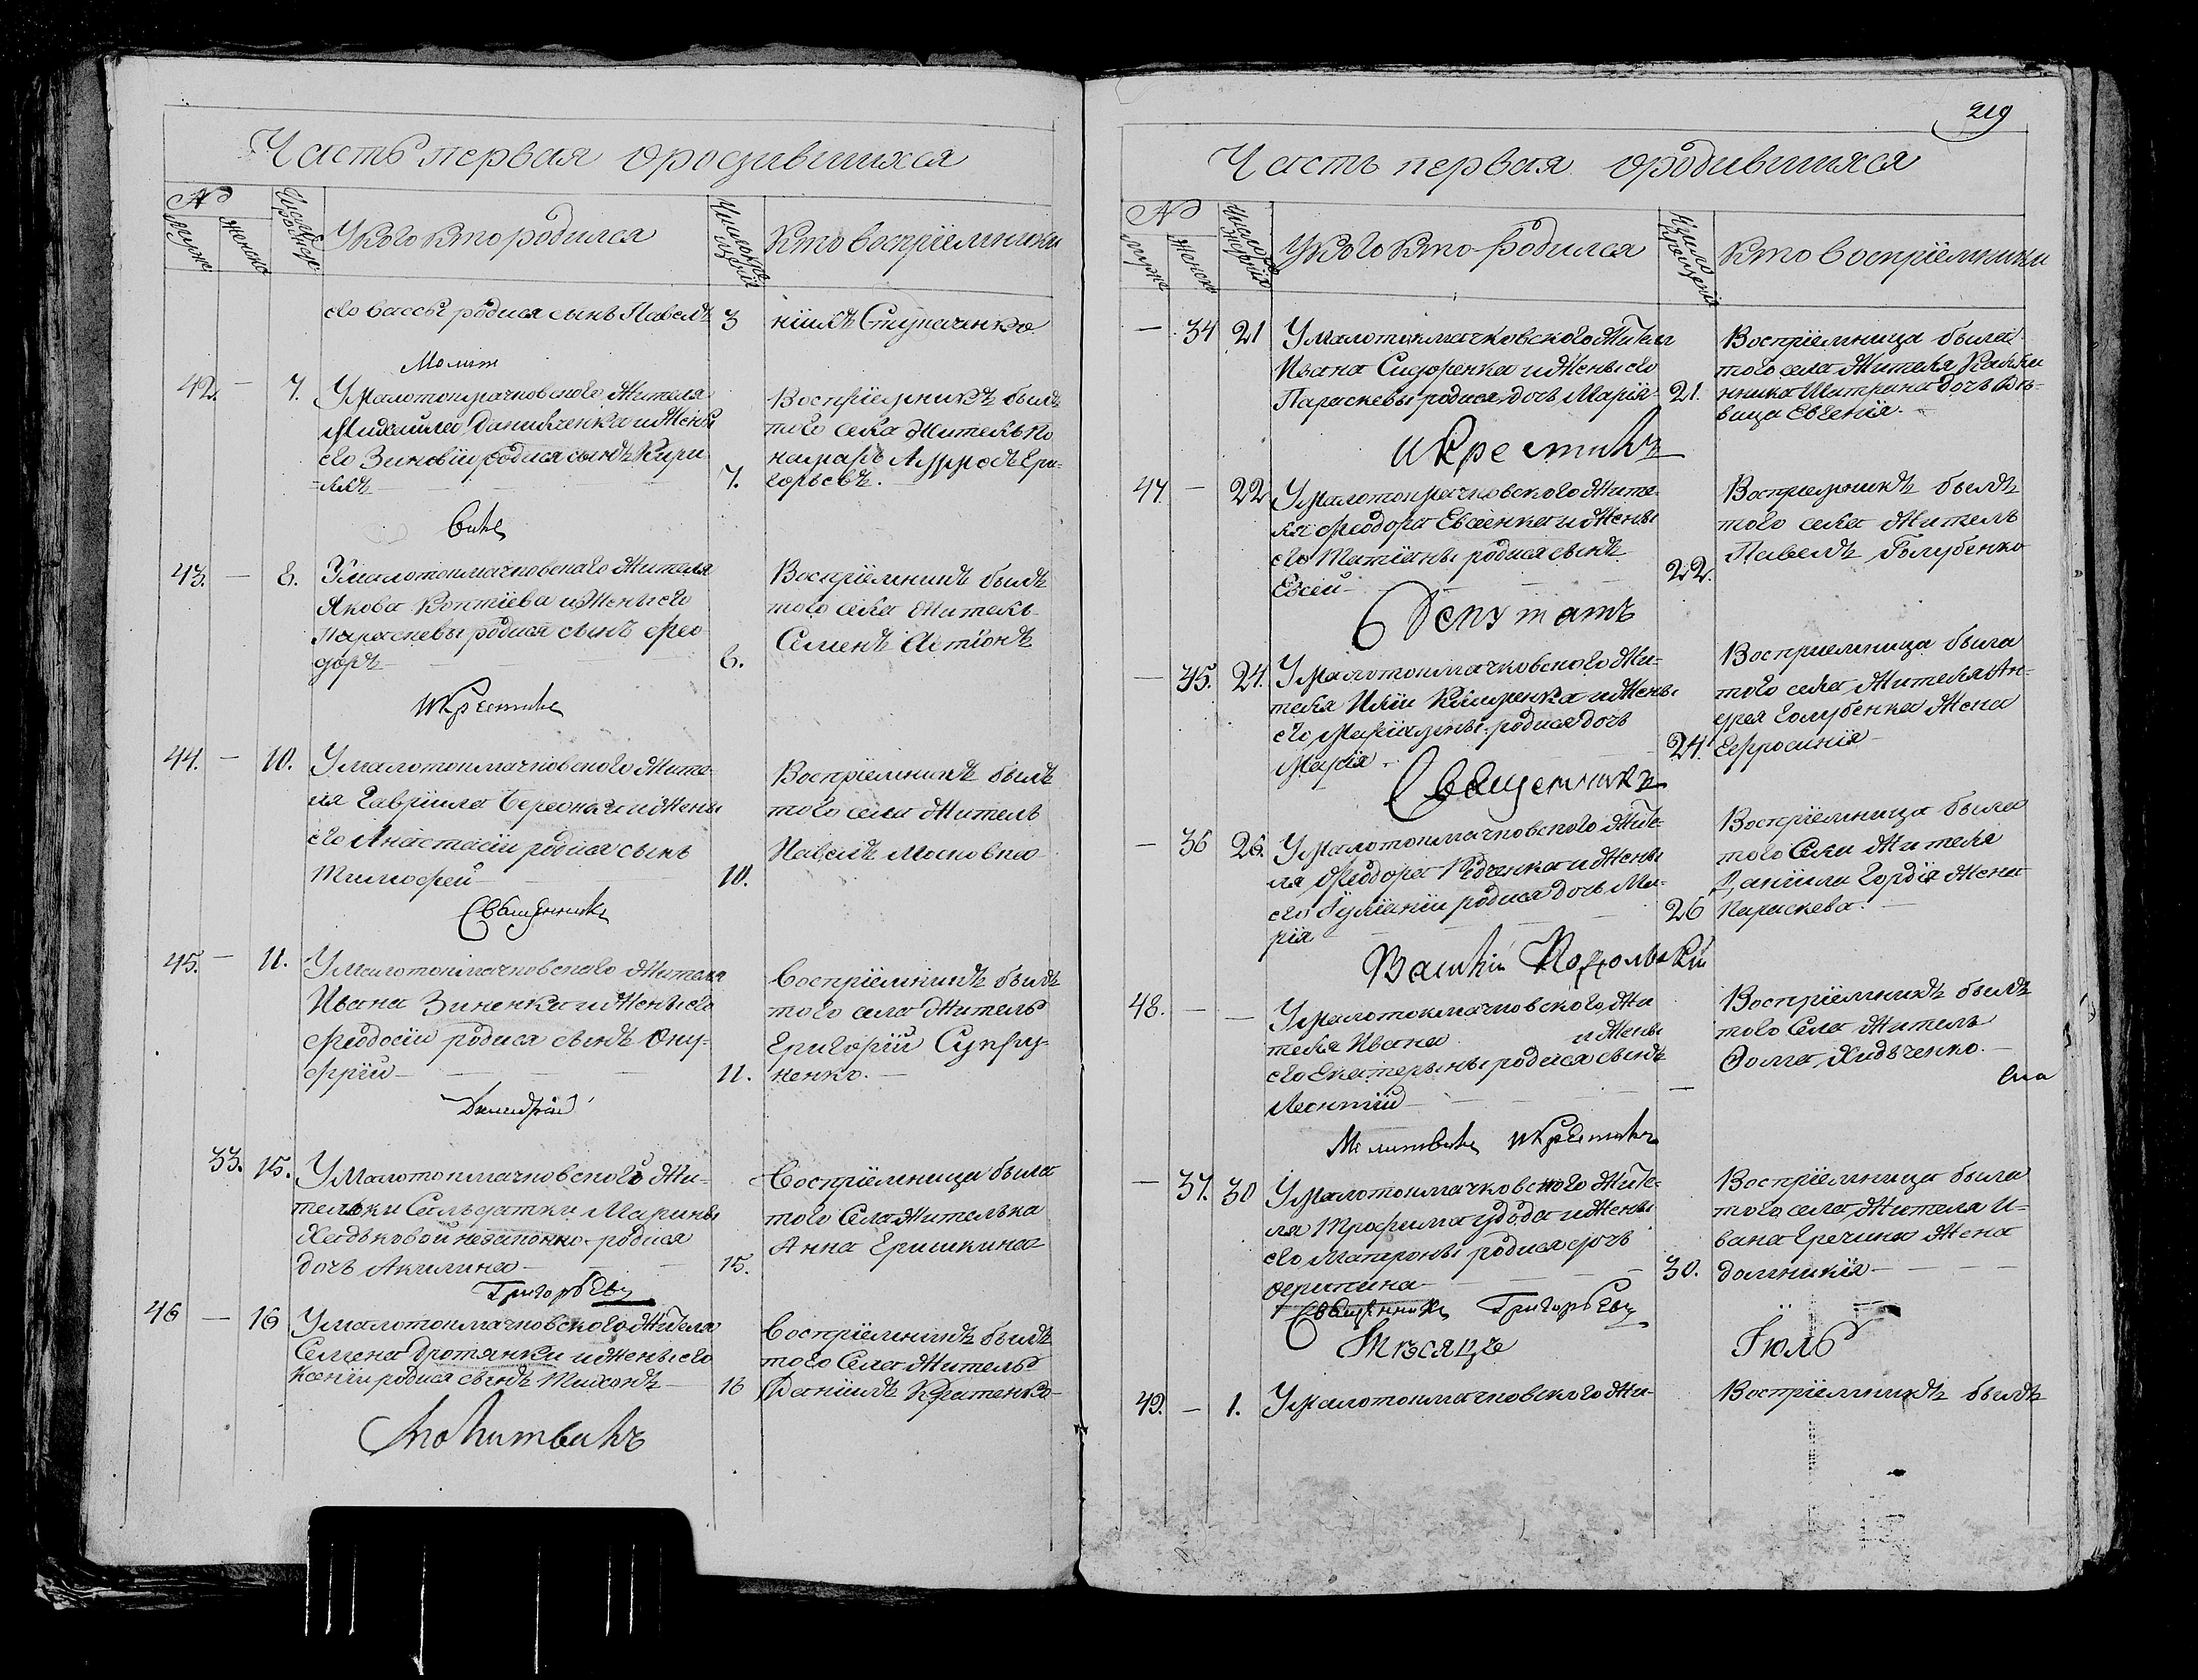 Часть первая о родившихся
№
мужс
женс
У кого кто родился
Кто восприемники
его вассы родися сынъ Павелъ
3
ніилъ Ступаченко
Молит
42. — 7. У малотокмачковскаго жителя
Михаила Данильченка и жены
его Зиновіи родися сынъ Кири-
ллъ
7.
Восприемникъ былъ
того села житель По
Гри-
горьевъ.
вилъ
43. — 8. У малотокмачковскаго жителя
Якова Коптіева и жены его
Параскевы родися сынъ Фео-
доръ
8.
Восприемникъ былъ
того села житель
Семенъ
и крестилъ
44. — 10. У малотокмачковскаго жите-
ля Гавріила и жены
его Анастасіи родися сынъ
Тимофей
10.
Восприемникъ былъ
того села житель
Павелъ Московко
Священникъ
45. — 11. У малотокмачковскаго жителя
Ивана Зиненка и жены его
Феодосіи родися сынъ Ону-
фрій
11.
Восприемникъ былъ
того села житель
Григорій Супру-
ненко.
Димитрій
33. 15. У малотокмачковскаго жи-
тельки солдатки Марины
Хадьковой незаконно родися
дочь Акилина
15.
Восприемница была
того села жителька
Анна Гришкина
Григорьевъ
46 — 16 У малотокмачковскаго жителя
Семена Дротянки и жены его
Ксеніи родися сынъ Тихонъ
16
Восприемникъ былъ
того села житель
Даніилъ Кратенко
Молитвилъ
219
Часть первая о родившихся
№
мужс
женс
У кого кто родился
Число крещенія
Кто восприемники
— 34 21 У малотокмачковскаго жителя
Ивана Сидоренка и жены его
Параскевы родися дочь Марія
21.
Восприемница была
того села жителя
дочь дѣ-
вица Евгенія.
и крестилъ
47 — 22 У малотокмачковскаго жите-
ля Феодора Евсенка и жены
его Татіаны родися сынъ
Евсей
22.
Восприемникъ былъ
того села житель
Павелъ Голубенко
Депутатъ
— 35. 24. У малотокмачковскаго жи-
теля Иліи Клименка и жены
его Маріамны родися дочь
Марія
24.
Восприемница была
того села жителя Ан-
дрея Голубенка жена
Ефросинія
Священникъ
— 36 26. У малотокмачковскаго жите-
ля Феодора и жены
его Іуліаніи родися дочь Ма-
рія
26
Восприемница была
того села жителя
Даніила Гордія жена
Параскева.
Василій
48. — — У малотокмачковскаго жи
теля Ивана и жены
его Екатерины родися сынъ
Леонтій
—
Восприемникъ былъ
того села житель
Фома Хидченко.
Молитвилъ и крестилъ
— 37. 30 У малотокмачковскаго жите-
ля Трофима Удода и жены
его Матроны родися дочь
Акилина
30.
Восприемница была
того села жителя И-
вана Гречина жена
Домникія
Священникъ Григорьевъ
Мѣсяцъ Іюль
49. — 1. У малотокмачковскаго жи-
Восприемникъ былъ